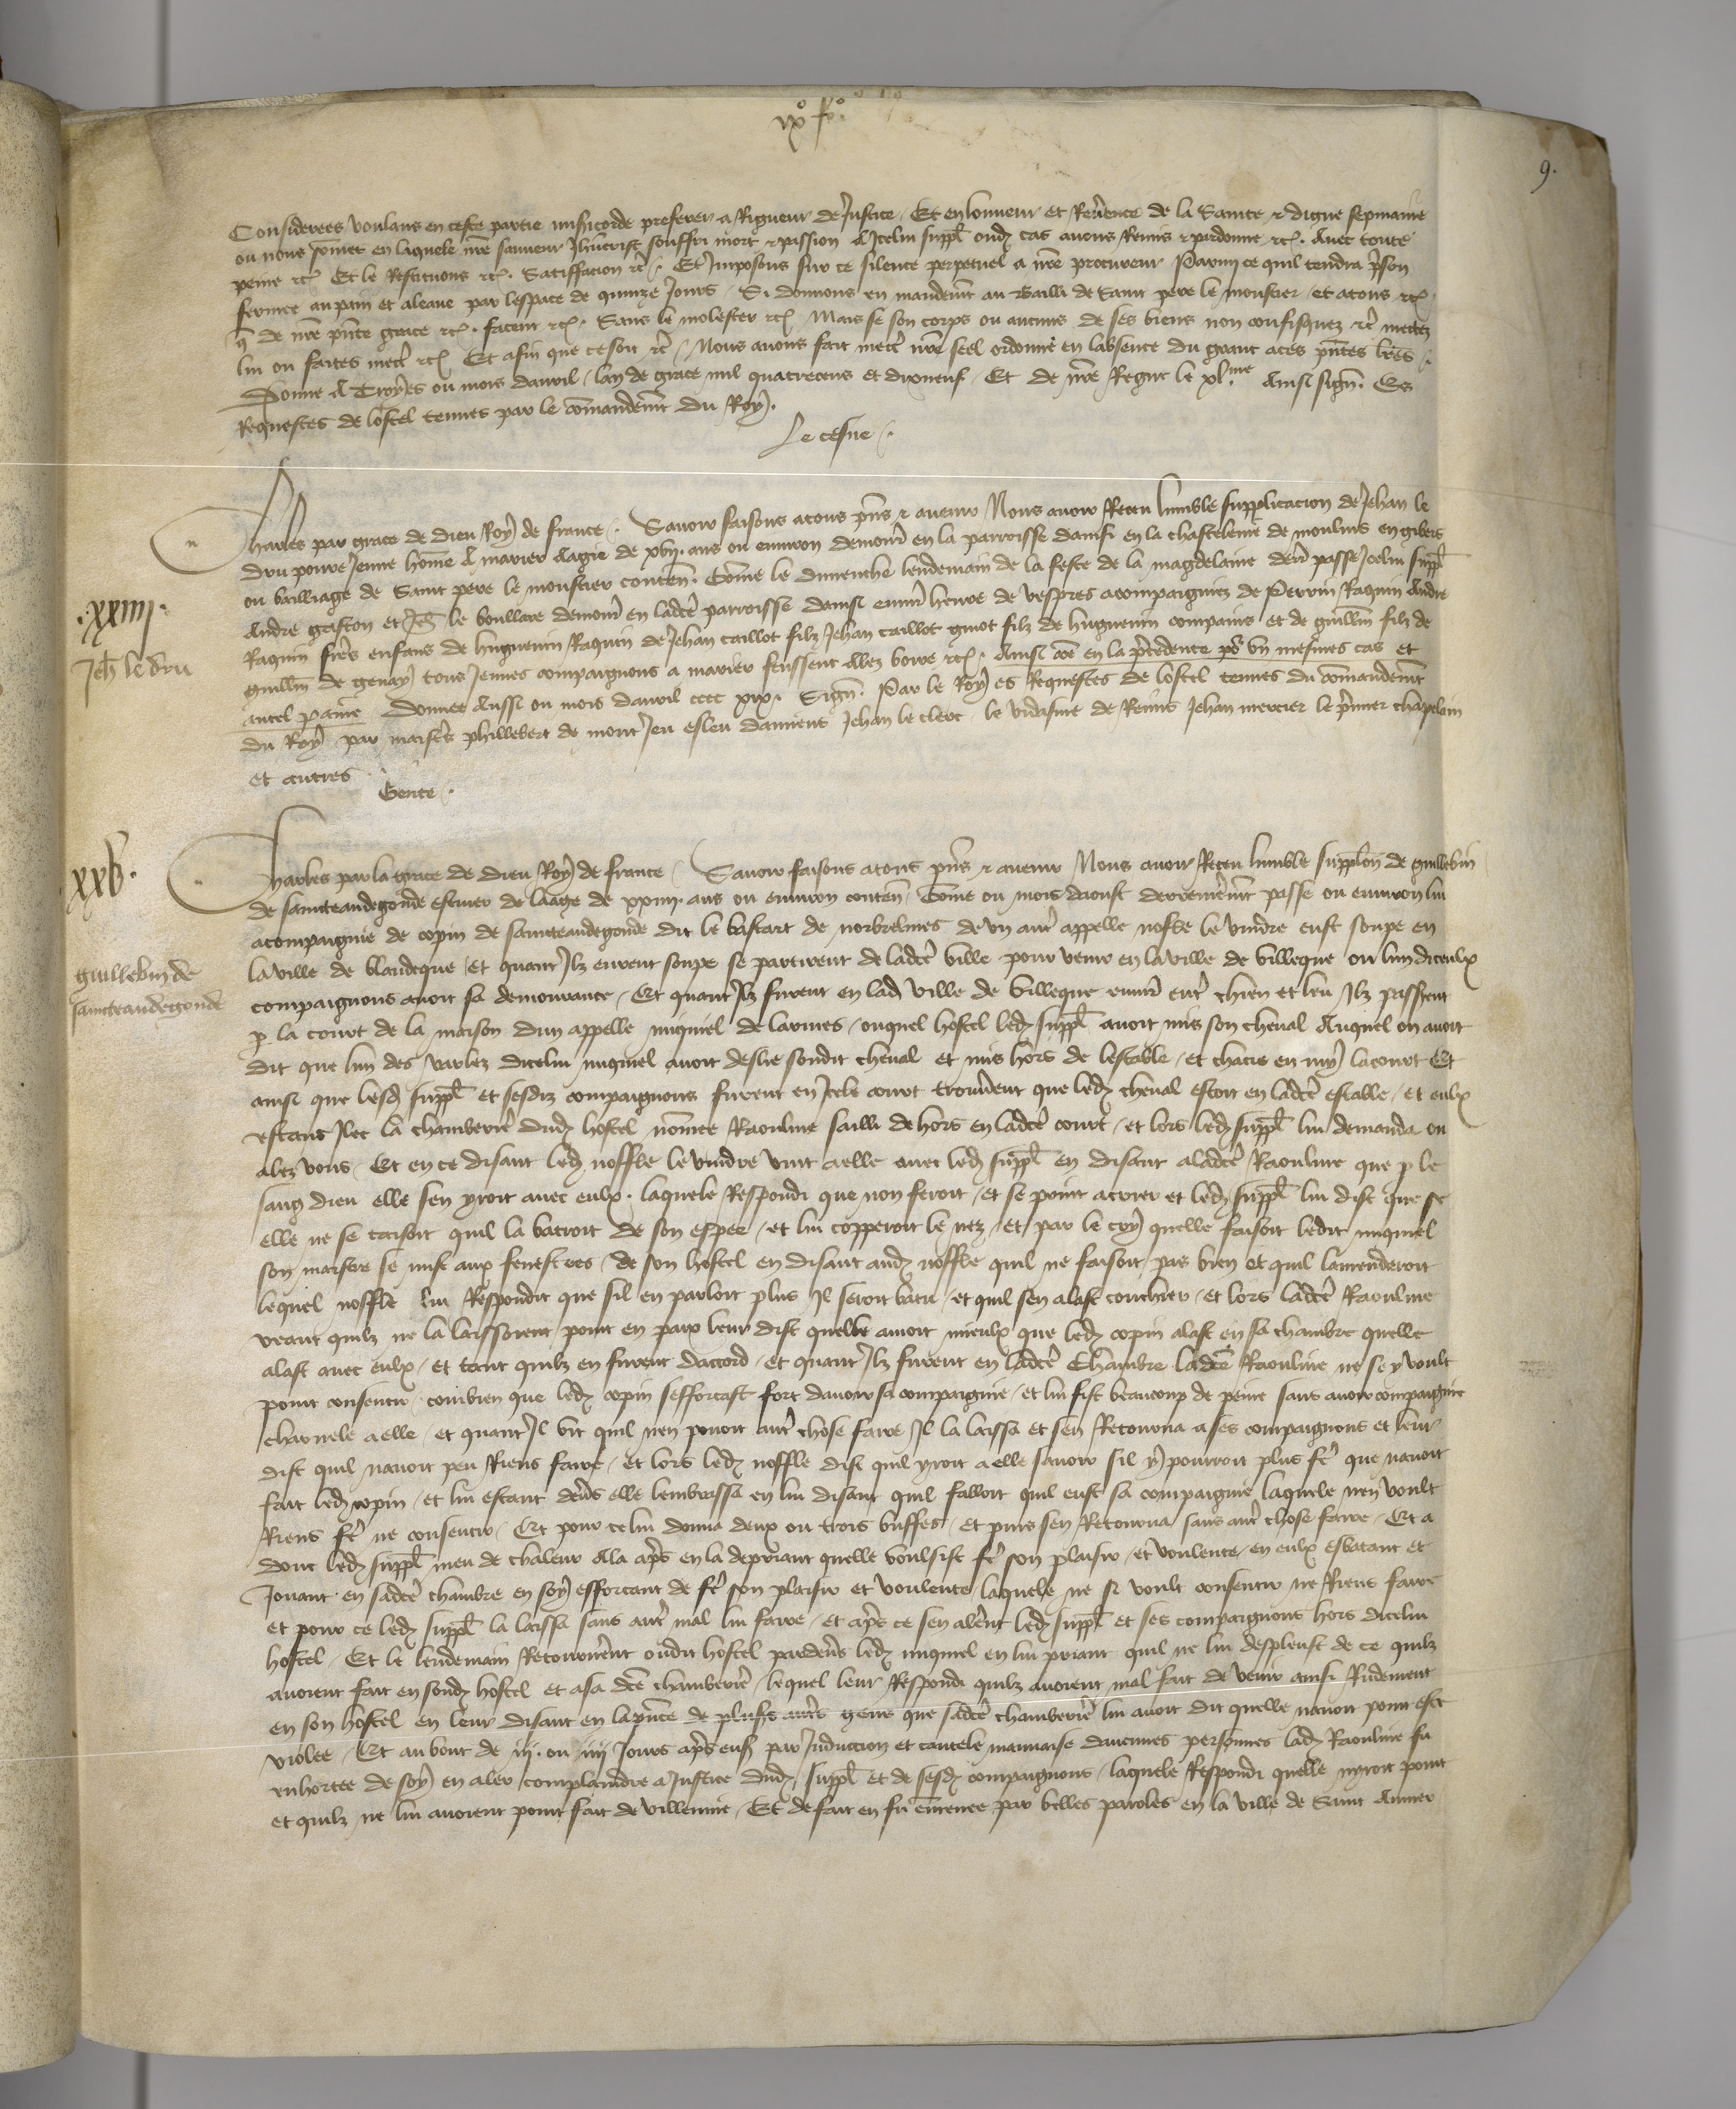 ixº fº
9.
Considerees voulans en ceste partie misicorde preferer a Rigueur de Justice Et en lonneur et Reverence de la Saincte & digne sepmaine
ou nous sommes en laquele nre sauveur Jhucrist souffri mort & passion A Icelui suppl oudit cas avons Remis & pardonne etc. Avec toute
peine etc Et le Restituons etc. Satiffacion etc Et Imposons sur ce silence perpetuel a nre procureur Parmi ce quil tendra prison
fermee au pain et aleaue par lespace de quinze Jours Si donnons en mandemt au Bailli de Saint pere le moustier et atous etc
q de nre pnte grace etc. facent etc. Sans le molester etc Mais se son corps ou aucuns de ses biens non confisquez etc mettez
lui ou faites mectre etc Et afin que ce soit etc Nous avons fait mectre nre seel ordonne en labsence du grant aces pntes lres
Donne A Troyes ou mois davril lan de grace mil quatrecens et dixneuf Et de nre Regne le xlme Ainsi sign. Es
Requestes de lostel tenues par le commandemt du Roy.
Le cesne
.xxiiii.
Jeh le dru
Charles par grace de dieu Roy de france Savoir faisons atous pns & avenir Nous avoir Receu lumble supplicacion de Jehan le
dru povre Jeune homme A marier Aagie de xvii. ans ou environ demour en la parroisse damfi en la chastelenie de moulins engibers
ou bailliage de Saint pere le moustier conten. Comme le dimenche lendemain de la feste de la magdelaine derr passe Icelui suppl
Andre gaston et Jeh le boullare demour en ladce parroisse damfi envir heure de vespres acompaigniez de Perrin Raquin Andre
Raquin freres enfans de huguenin Raquin de Jehan caillot filz Jehan caillot guiot filz de huguenin compains et de guillm filz de
guillm de genay tous Jeunes compaignons a marier feussent Alez boire etc. Ainsi coe en la precedente po un mesmes cas et
autel paine Donnee Aussi ou mois davril cccc xix. Sign. Par le Roy es Requestes de lostel tenues du commandemt
du Roy par maistre phillebert de montJeu esleu damiens Jehan le clerc le vidasme de Reims Jehan mercier le premier chapelain
et autres
Gente.
xxv.
guillebin de
saincteaudegonde
Charles par la grace de dieu Roy de france Savoir faisons atous pns & avenir Nous avoir Receu lumble supplon de guillebin
de saincteaudegonde escuier de laage de xxiiii. ans ou environ conten Comme ou mois daoust derrenieremt passe ou environ lui
acompaignie de copin de saincteaudegonde dit le bastart de norbrelmes de un autre appelle noffle le vindre eust soupe en
la ville de blandeque et quant Ilz eurent soupe se partirent de ladce ville pour venir en la ville de villeque ou lun diceulx
compaignons avoit sa demourance Et quant Ilz furent en lad ville de villeque envir entre chien et leu Ilz passerent
p la court de la maison dun appelle miquiel de larmes ouquel hostel led suppl avoit mis son cheval Auquel on avoit
dit que lun des varlez dicelui miquiel avoit deslie sondit cheval et mis hors de lestable et chacie en my la court Et
ainsi que lesd suppl et sesdiz compaignons furent en Icele court trouverent que led cheval estoit en ladce estable et eulx
estans Ilec la chamberiere dud hostel nommee Raouline sailli dehors en ladce court et lors led suppl lui demanda ou
alez vous Et en ce disant led noffle le vindre vint aelle avec led suppl en disant aladce Raouline que p le
sang dieu elle sen yroit avec eulx. laquele Respondi que non feroit et se print acrier et led suppl lui dist que se
elle ne se taisoit quil la batroit de son espee et lui copperoit le nez et par le cry quelle faisoit ledit miquiel
son maistre se mist aux fenestres de son hostel en disant aud noffle quil ne faisoit pas bien et quil lamenderoit
lequel noffle lui Respondit que sil en parloit plus Il seroit batu et quil sen alast couchier et lors ladce Raouline
veant quilz ne la laissoient point en paix leur dist quelle amoit mieulx que led copin alast en sa chambre quelle
alast avec eulx et tant quilz en furent daccord et quant Ilz furent en ladce Chambre ladce Raouline ne se y voult
point consentir combien que led copin sefforcast fort davoir sa compaignie et lui fist beaucoup de peine sans avoir compaignie
charnele aelle et quant Il vit quil nen povoit autre chose faire Il la laissa et sen Retourna a ses compaignons et leur
dist quil navoit peu Riens faire et lors led noffle dist quil yroit aelle savoir sil y pourroit plus fre que navoit
fait led copin et lui estant devers elle lembrassa en lui disant quil falloit quil eust sa compaignie laquele nen voult
Riens fre ne consentir Et pour ce lui donna deux ou trois buffes et puis sen Retourna sans autre chose faire Et a
donc led suppl meu de chaleur Ala apres en la depriant quelle voulsist fre son plaisir et voulente en eulx esbatant et
Jouant en sadce chambre en soy efforcant de fre son plaisir et voulente laquele ne si voult consentir ne Riens faire
et pour ce led suppl la laissa sans autre mal lui faire et apres ce sen alerent led suppl et ses compaignons hors dicelui
hostel Et le lendemain Retournerent oudit hostel pardevers led miquiel en lui priant quil ne lui despleust de ce quilz
avoient fait en sond hostel et asa dce chamberiere lequel leur Respondi quilz avoient mal fait de venir ainsi Rudement
en son hostel en leur disant en la pnce de plusrs autres gens que sadce chamberiere lui avoit dit quelle navoit point este
violee Et au bout de iii. ou iiii Jours apres ensuivans par Induccion et cautele mauvaise daucunes personnes lad Raouline fu
enhortee de soy en aler complaindre a Justice dud suppl et de sesd compaignons laquele Respondi quelle nyroit point
et quilz ne lui avoient point fait de villenie Et de fait en fu emmenee par belles paroles en la ville de Saint Aumer